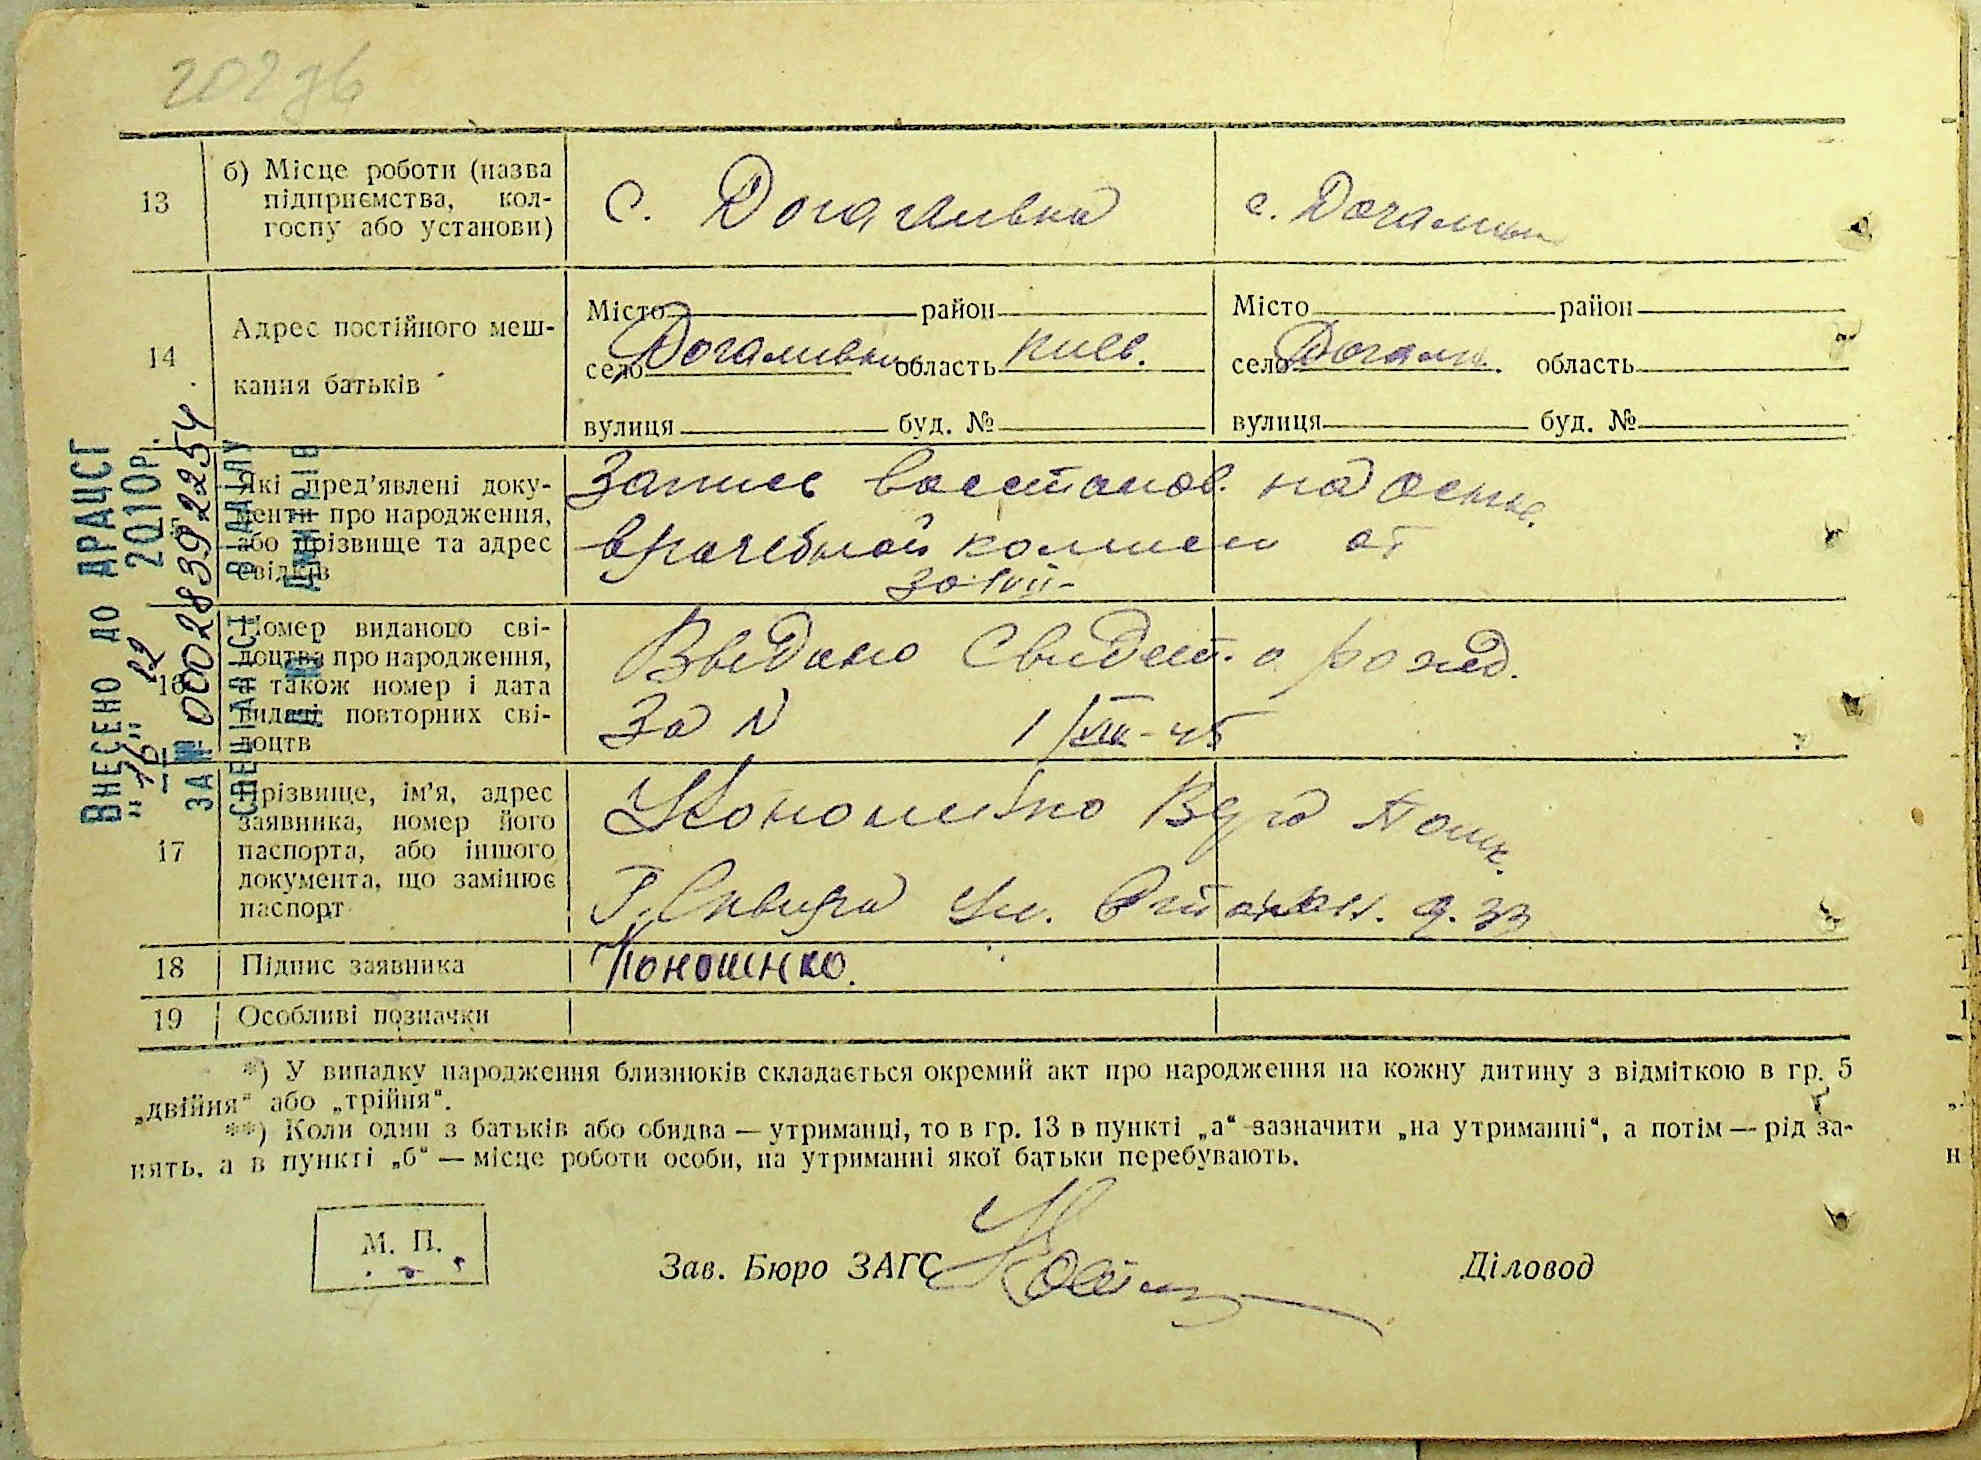 13
б) Місце роботи (назва
підприємства, кол-
госпу або установи)
с.
с.
14
Адрес постійного меш-
кання батьків
Місто район
село область Киев.
вулиця буд. №
Місто район
село область
вулиця буд. №
Які пред'явлені доку-
менти про народження,
або прізвище та адрес
свідків
Запись восстанов. на основ.
врачебной комисси от
30/VII-
16
Номер виданого сві-
доцтва про народження,
а також номер і дата
видачі повторних сві-
доцтв
Выдано Свидет. о рожд.
За N 1/VIII-45
17
Прізвище, ім'я, адрес
заявника, номер його
паспорта, або іншого
документа, що замінює
паспорт
г. Сквира ул. д. 33
18
Підпис заявника
Кононенко.
19
Особливі позначки
*) У випадку народження близнюків складається окремий акт про народження на кожну дитину з відміткою в гр. 5
„двійня“ або „трійня“.
**) Коли один з батьків або обидва — утриманці, то в гр. 13 в пункті „а“ зазначити „на утриманні“, а потім — рід за-
нять, а в пункті „б“ — місце роботи особи, на утриманні якої батьки перебувають.
М. П.
Зав. Бюро ЗАГС
Діловод
ВНЕСЕНО ДО ДРАЦСГ
"16" 12 201 0р.
ЗА № 00028392254
СПЕЦІАЛІСТ ВІДДІЛУ